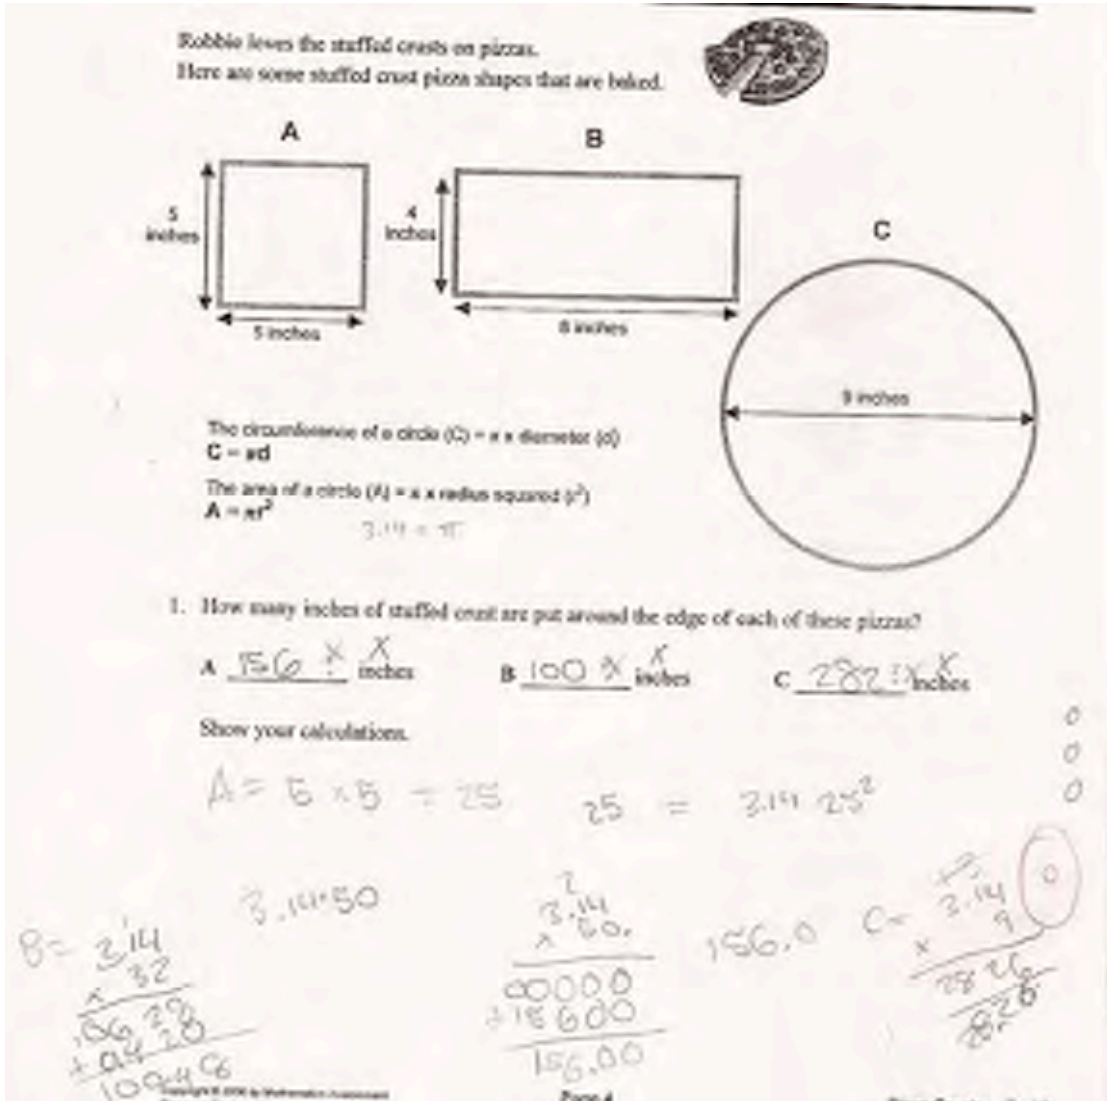 Robbie loves the stuffed crusts on pizzas.
Here are some stuffed crust pizza shapes that are baked.
A
B
C
5
inches
4
inches
5 inches
8 inches
9 inches
The circumference of a circle (C) = π x diameter (d)
C = πd
The area of a circle (A) = π x radius squared (r²)
A = πr²
3.14 = π
1. How many inches of stuffed crust are put around the edge of each of these pizzas?
A 156 inches B 100 inches C 282 inches
x x x x x x
Show your calculations.
0
0
0
A = 5 x 5 = 25 25 = 3.14 25²
0
3.14·50
B= 3.14
x 32
2
3.14
x 50.
00000
+15600
156.00
156.0
C= 3.14
x 9
2826
28.26
Page 4